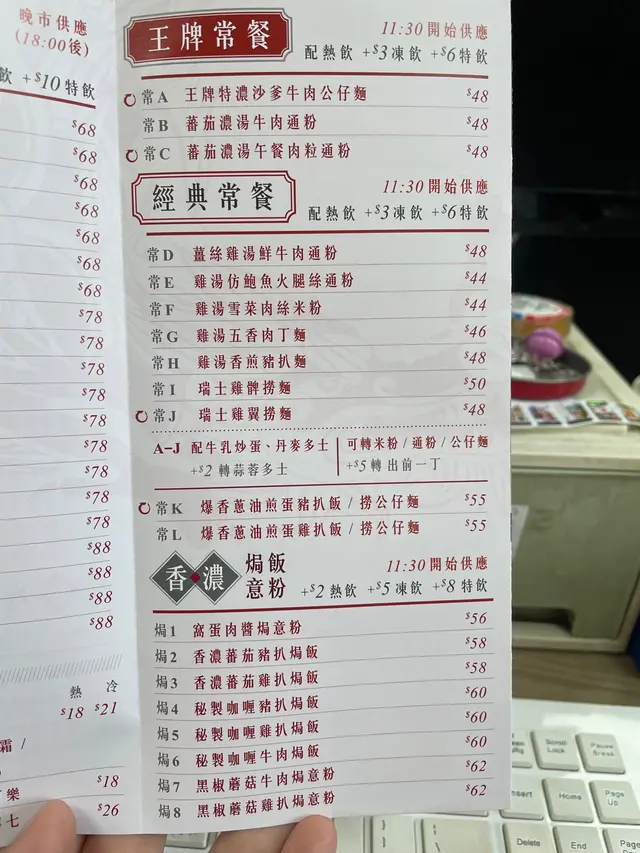 晚市供應
(18:00後)
飲 +$10特飲
$68
$68
$68
$68
$68
$68
$68
$78
$78
$78
$78
$78
$78
$78
$78
$78
$88
$88
$88
$88
熱 冷
$18 $21
霜 /
樂 $18
七 $26
王牌常餐
11:30開始供應
配熱飲 +$3凍飲 +$6特飲
常A 王牌特濃沙爹牛肉公仔麵 $48
常B 蕃茄濃湯牛肉通粉 $48
常C 蕃茄濃湯午餐肉粒通粉 $48
經典常餐
11:30開始供應
配熱飲 +$3凍飲 +$6特飲
常D 薑絲雞湯鮮牛肉通粉 $48
常E 雞湯仿鮑魚火腿絲通粉 $44
常F 雞湯雪菜肉絲米粉 $44
常G 雞湯五香肉丁麵 $46
常H 雞湯香煎豬扒麵 $48
常I 瑞士雞髀撈麵 $50
常J 瑞士雞翼撈麵 $48
A-J 配牛乳炒蛋、丹麥多士
+$2 轉蒜蓉多士
可轉米粉 / 通粉 / 公仔麵
+$5 轉出前一丁
常K 爆香蔥油煎蛋豬扒飯 / 撈公仔麵 $55
常L 爆香蔥油煎蛋雞扒飯 / 撈公仔麵 $55
香濃
焗飯
意粉
11:30開始供應
+$2熱飲 +$5凍飲 +$8特飲
焗1 窩蛋肉醬焗意粉 $56
焗2 香濃蕃茄豬扒焗飯 $58
焗3 香濃蕃茄雞扒焗飯 $58
焗4 秘製咖喱豬扒焗飯 $60
焗5 秘製咖喱雞扒焗飯 $60
焗6 秘製咖喱牛肉焗飯 $60
焗7 黑椒蘑菇牛肉焗意粉 $62
焗8 黑椒蘑菇雞扒焗意粉 $62
Scroll
Lock
Pause
Break
Home
Page
Up
Delete
End
Page